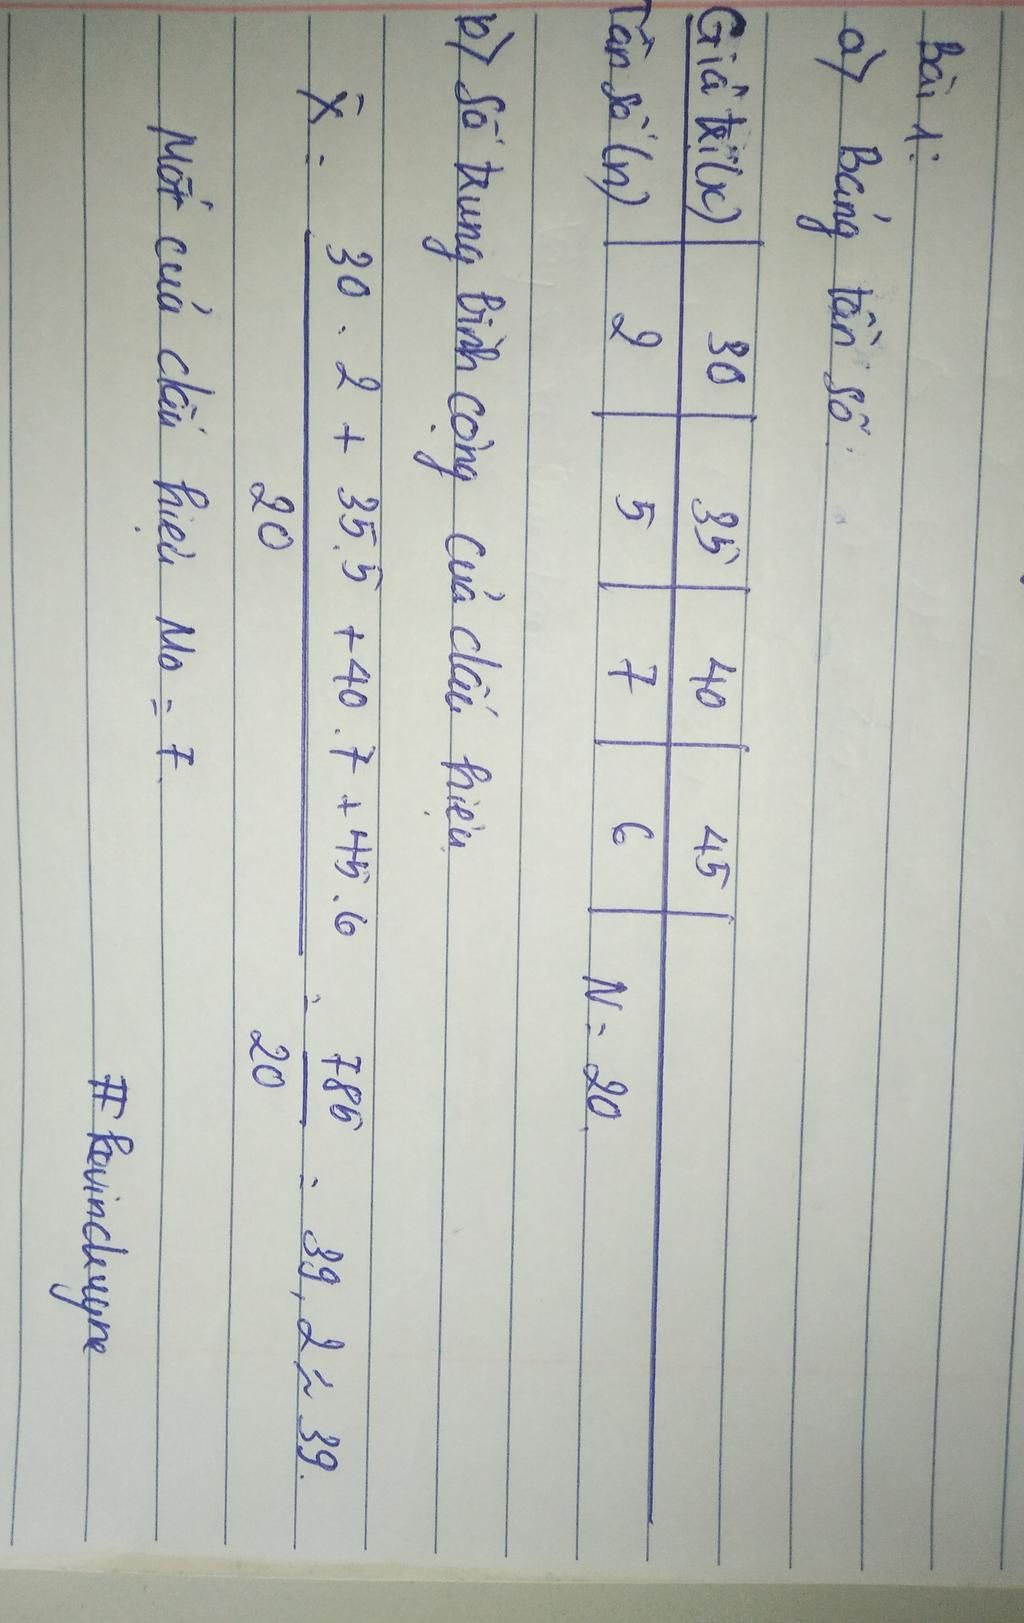 Bài 1:
a) Bảng tần số.
Giá trị (x) 30 35 40 45
Tần số (n) 2 5 7 6 N = 20.
b) Số trung bình cộng của dấu hiệu
X̄ = 30 . 2 + 35.5 + 40 . 7 + 45 . 6 / 20 = 785 / 20 = 39,2 ~ 39.
Mốt của dấu hiệu Mo = 7.